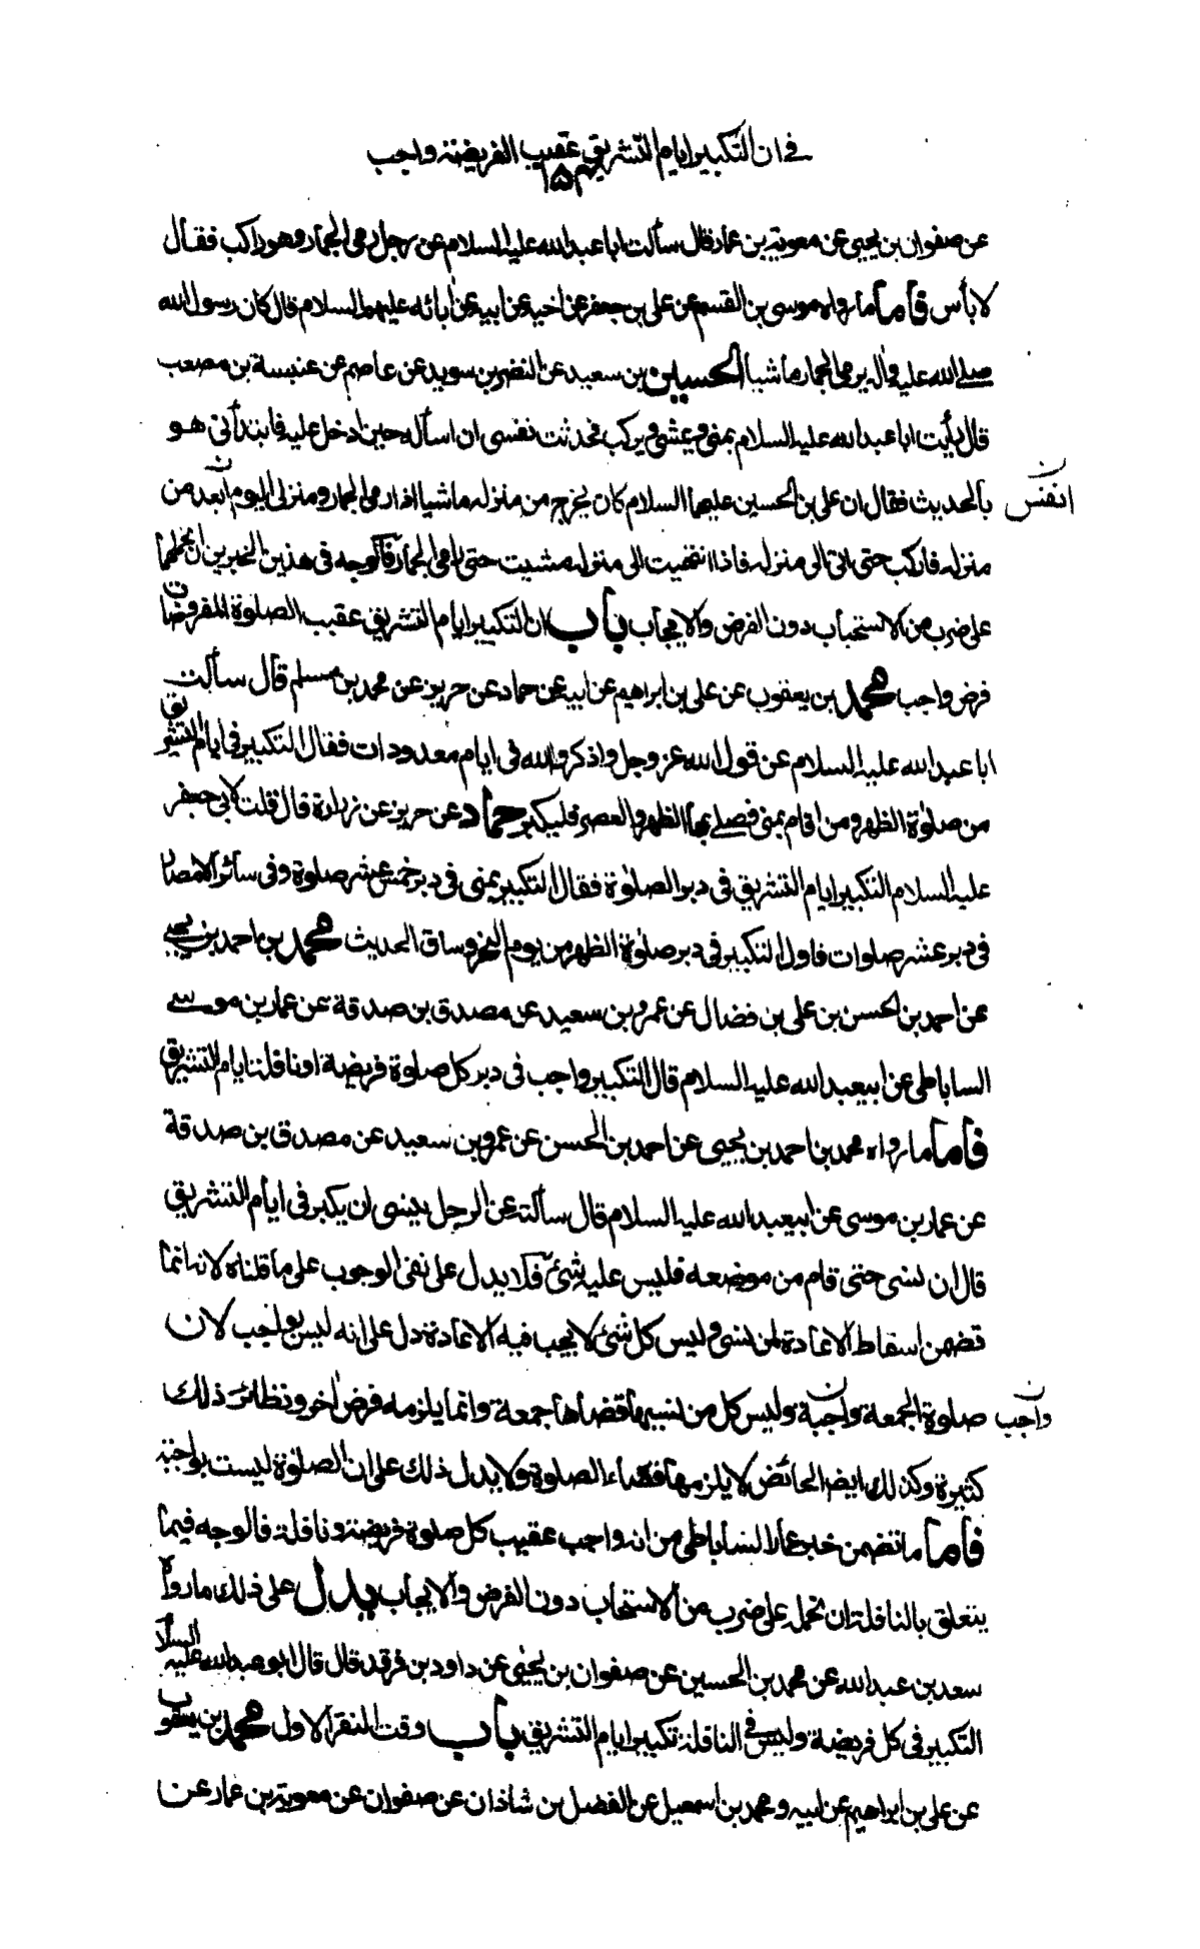 في ان التكبير ايام التشريق عقيب الفريضة واجب
عن صفوان بن يحيى عن معوية بن عمار قال سألت ابا عبد الله عليه السلام عن رجل رمى الجمار وهو راكب فقال
لا بأس فاما ما رواه موسى بن القسم عن على بن جعفر عن اخيه عن ابيه عن ابائه عليهم السلام قال كان رسول الله
صلى الله عليه وآله يرمى الجمار ماشيا الحسين بن سعيد عن النضر بن سويد عن عاصم عن عنبسة بن مصعب
قال رأيت ابا عبد الله عليه السلام بمنى يمشى ويركب فحدثت نفسى ان اسأله حين ادخل عليه فابتدأنى هو
بالحديث فقال ان على بن الحسين عليهما السلام كان يخرج من منزله ماشيا اذا رمى الجمار ومنزلى اليوم ابعد من
منزله فاركب حتى اتى الى منزله فاذا انتهيت الى منزله مشيت حتى ارمى الجمار فالوجه فى هذين الخبرين ان نحملهما
على ضرب من الاستحباب دون الفرض والايجاب باب ان التكبير ايام التشريق عقيب الصلوة المفروضات
فرض واجب محمد بن يعقوب عن على بن ابراهيم عن ابيه عن حماد عن حريز عن محمد بن مسلم قال سألت
ابا عبد الله عليه السلام عن قول الله عز وجل واذكروا الله فى ايام معدودات فقال التكبير فى ايام التشريق
من صلوة الظهر ومن اقام بمنى فصلى بها الظهر والعصر فليكبر حماد عن حريز عن زرارة قال قلت لابى جعفر
عليه السلام التكبير ايام التشريق فى دبر الصلوة فقال التكبير بمنى فى دبر خمس عشر صلوة وفى سائر الامصار
فى دبر عشر صلوات فاول التكبير فى دبر صلوة الظهر من يوم النحر وساق الحديث محمد بن احمد بن يحيى
عن احمد بن الحسن بن على بن فضال عن عمرو بن سعيد عن مصدق بن صدقة عن عمار بن موسى
الساباطى عن ابيعبد الله عليه السلام قال التكبير واجب فى دبر كل صلوة فريضة او نافلة ايام التشريق
فاما ما رواه محمد بن احمد بن يحيى عن احمد بن الحسن عن عمرو بن سعيد عن مصدق بن صدقة
عن عمار بن موسى عن ابيعبد الله عليه السلام قال سألته عن الرجل ينسى ان يكبر فى ايام التشريق
قال ان نسى حتى قام من موضعه فليس عليه شئ فلا يدل على نفى الوجوب على ما قلناه لانه انما
تضمن اسقاط الاعادة لمن نسى وليس كل شئ لا يجب فيه الاعادة دل على انه ليس بواجب لان
صلوة الجمعة واجبة وليس كل من نسيها قضاها جمعة وانما يلزمه فرض اخر ونظائر ذلك
كثيرة وكذلك ايضا الحائض لا يلزمها قضاء الصلوة ولا يدل ذلك على ان الصلوة ليست بواجبة
فاما ما تضمن خبر عمار الساباطى من انه واجب عقيب كل صلوة فريضة ونافلة فالوجه فيما
يتعلق بالنافلة ان نحمله على ضرب من الاستحباب دون الفرض والايجاب يدل على ذلك ما رواه
سعد بن عبد الله عن محمد بن الحسين عن صفوان بن يحيى عن داود بن فرقد قال قال ابو عبد الله عليه السلام
التكبير فى كل فريضة وليس فى النافلة تكبير ايام التشريق باب وقت النفر الاول محمد بن يعقوب
عن على بن ابراهيم عن ابيه ومحمد بن اسمعيل عن الفضل بن شاذان عن صفوان عن معوية بن عمار عن
واجب